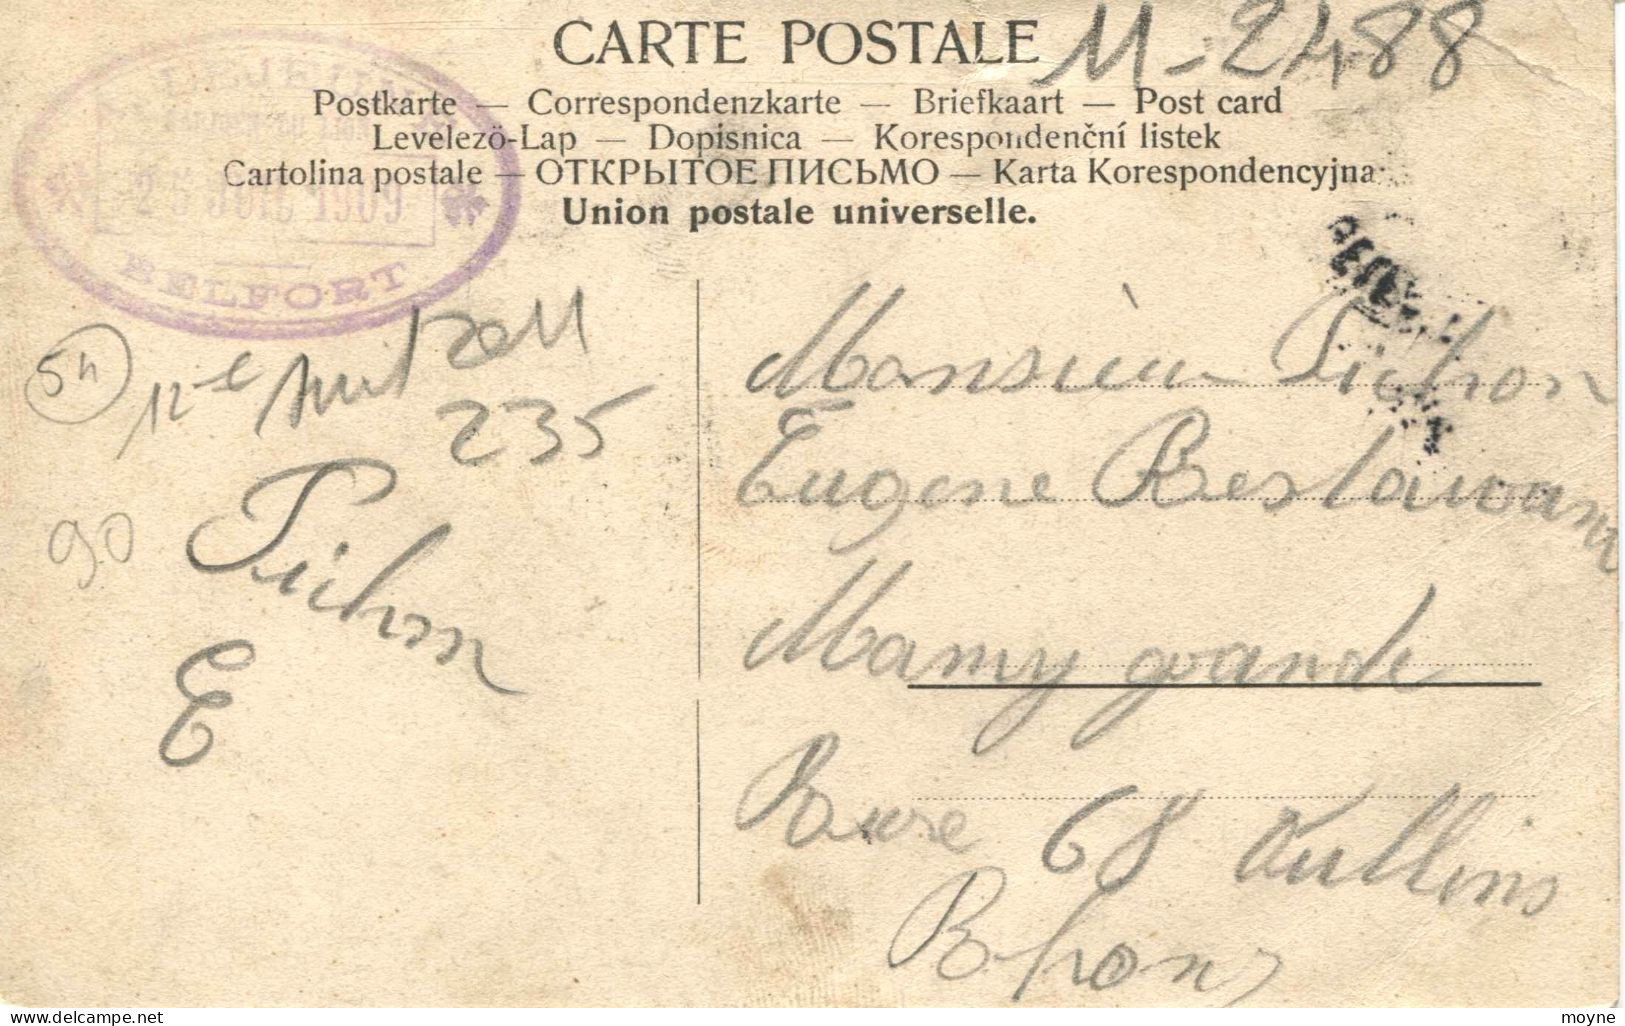 CARTE POSTALE
M-2488
Postkarte — Correspondenzkarte — Briefkaart — Post card
Levelezö-Lap — Dopisnica — Korespondenční listek
Cartolina postale — ОТКРЫТОЕ ПИСЬМО — Karta Korespondencyjna
Union postale universelle.
1909
BELFORT
54
235
90
Pichon
E
Monsieur Pichon
Eugene
grande
Rure 68 Oullins
Rhone
moyne